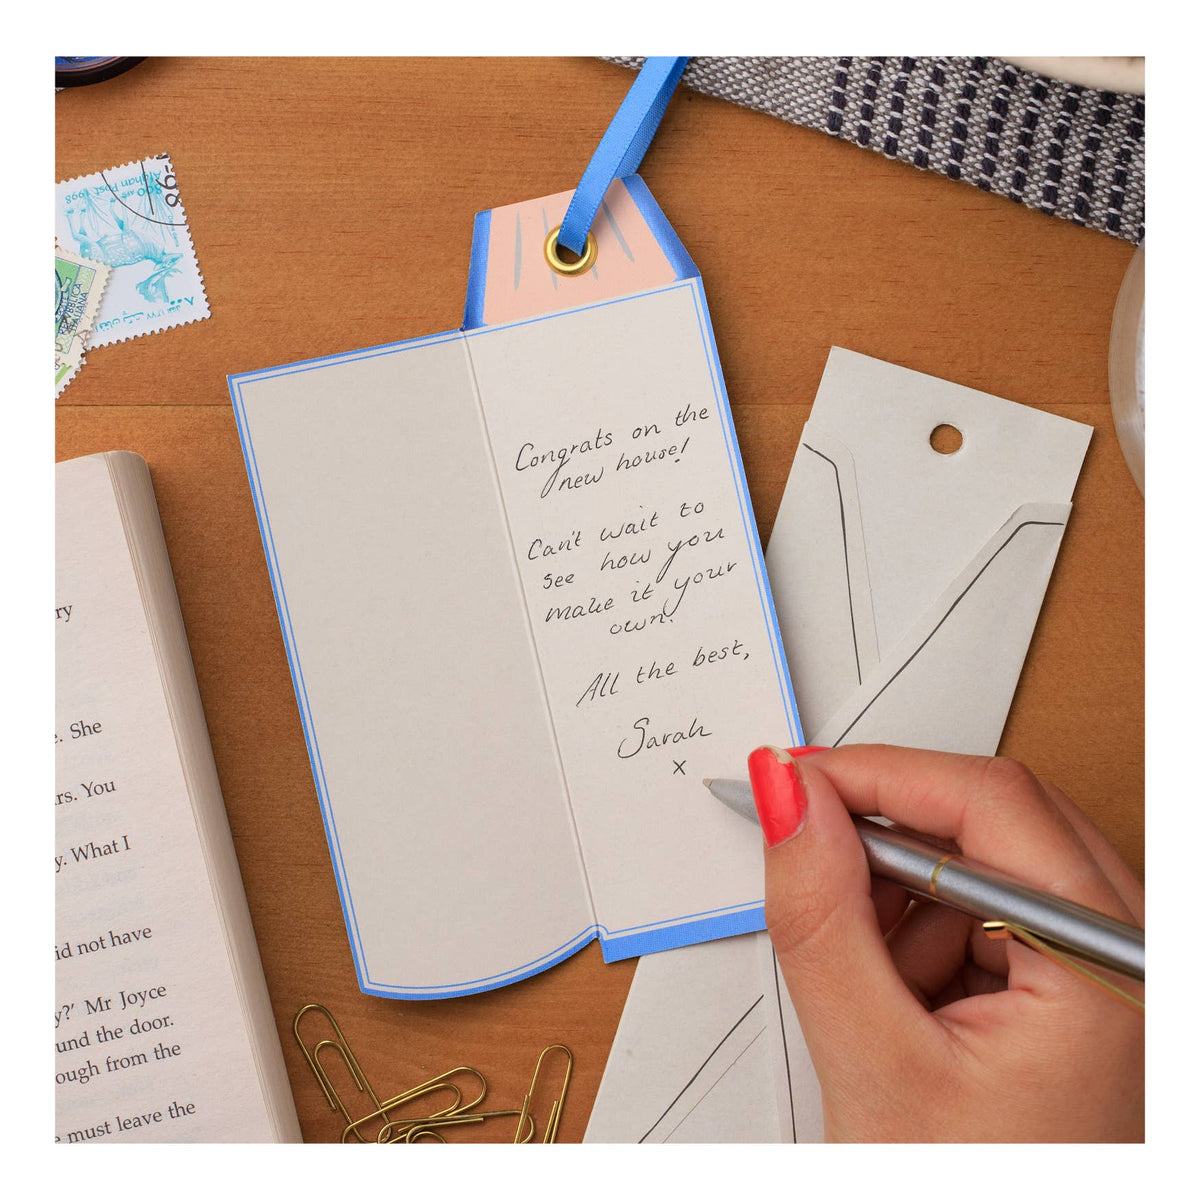 Congrats on the
new house!
Can't wait to
see how you
make it your
own.
All the best,
Sarah
x
Afghan Post 1998
800 AFS
-98
REPVBBLICA
ITALIANA
ry
. She
rs. You
y. What I
id not have
y?' Mr Joyce
und the door.
ough from the
must leave the